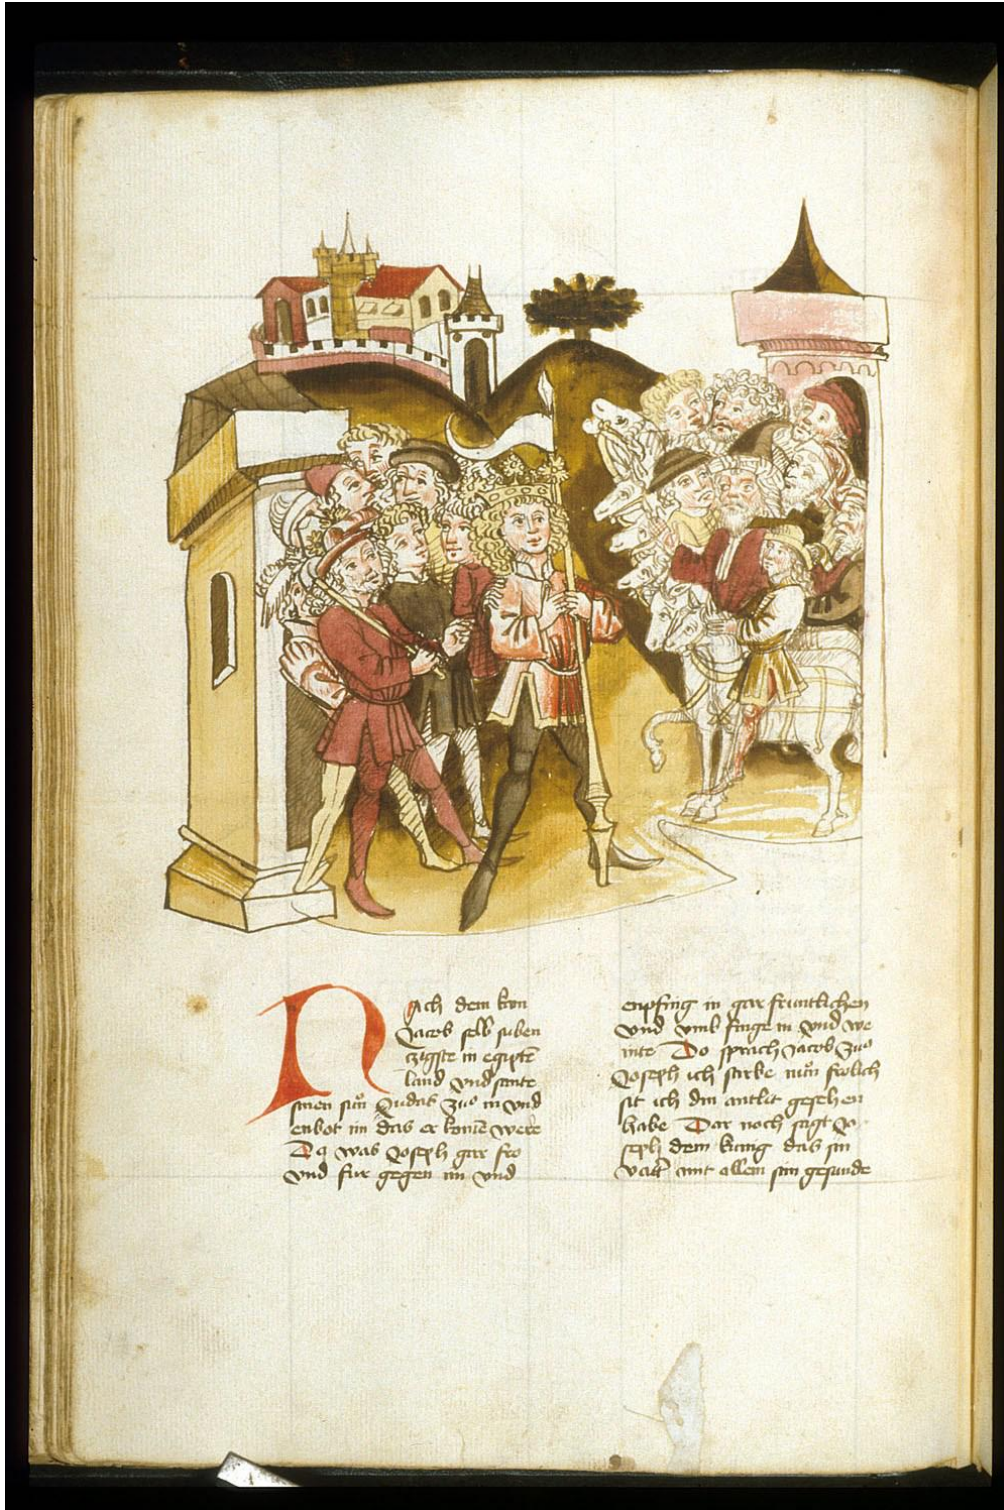 Nach dem kom
Jacob selb siben
tzigste in egipte
land vnd sante
sinen sun Judas zuo im vnd
enbot im das er komē were
Da was Joseph gar fro
vnd fur gegen im vnd
enpfing in gar fruntlichen
vnd vmb finge in vnd we
inte Do sprach Jacob zuo
Joseph ich stirbe nun frolich
sit ich din antlit gesehen
habe Dar noch sagt Jo
seph dem kunig das sin
vatter mit allem sim gesinde